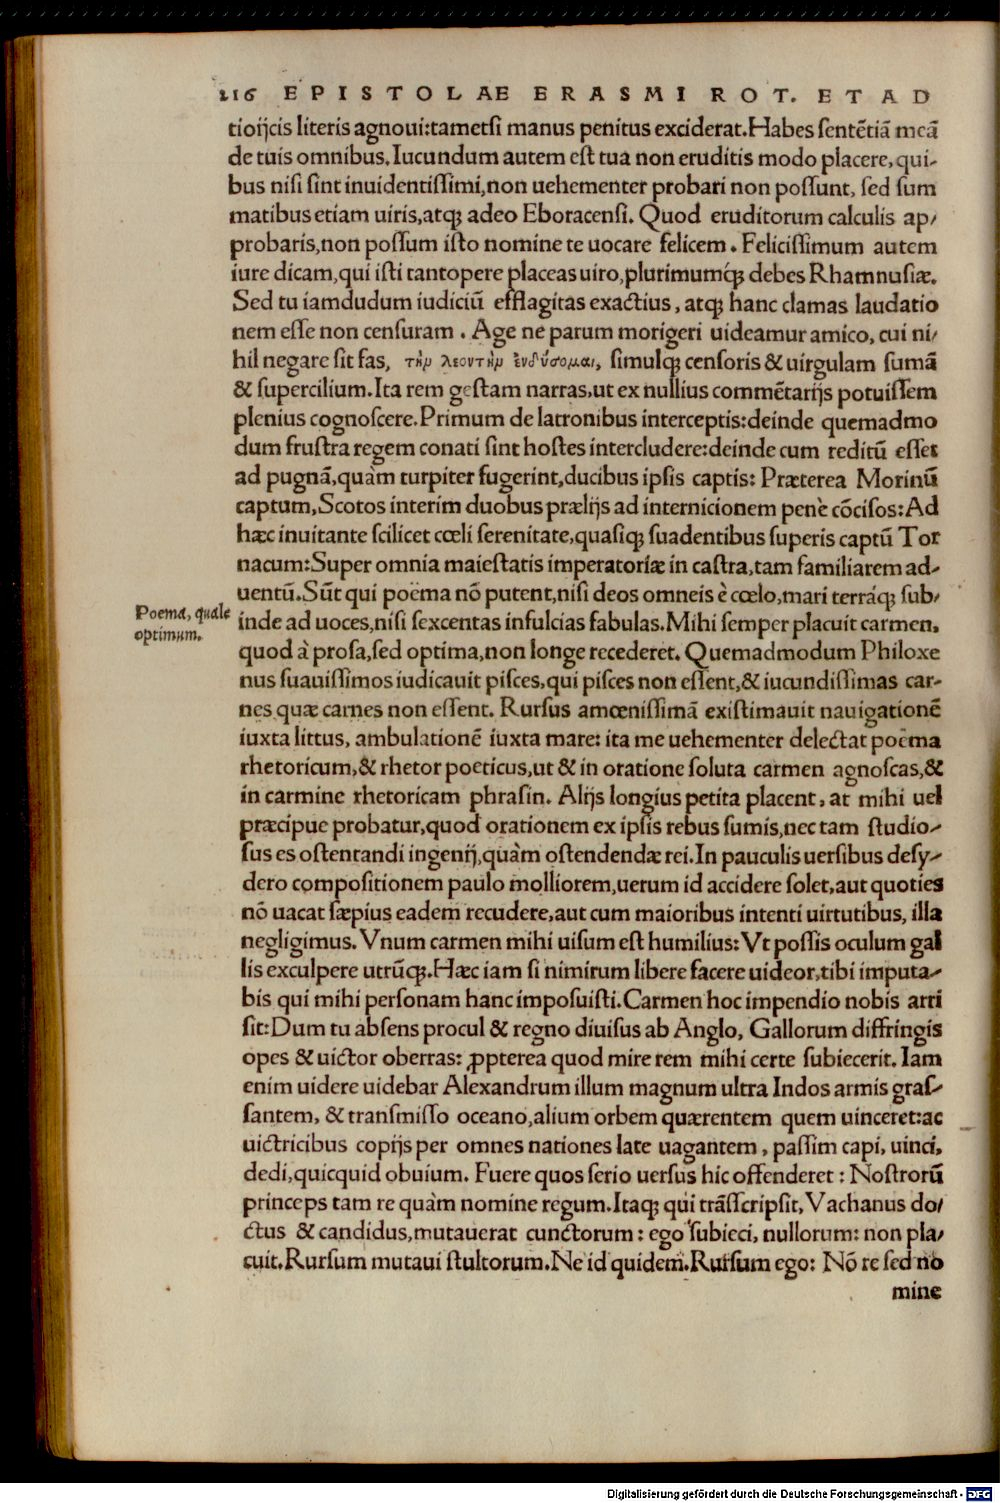 216 EPISTOLAE ERASMI ROT. ET AD
tioijcis literis agnoui:tametsi manus penitus exciderat.Habes sentẽtiã meã
de tuis omnibus. Iucundum autem est tua non eruditis modo placere, qui-
bus nisi sint inuidentissimi,non uehementer probari non possunt, sed sum
matibus etiam uiris,atq; adeo Eboracensi. Quod eruditorum calculis ap-
probaris,non possum isto nomine te uocare felicem. Felicissimum autem
iure dicam,qui isti tantopere placeas uiro,plurimumq́; debes Rhamnusiæ.
Sed tu iamdudum iudiciũ efflagitas exactius, atq; hanc clamas laudatio
nem esse non censuram. Age ne parum morigeri uideamur amico, cui ni-
hil negare sit fas, τὴμ λεοντὴμ ἐνδύσομαι, simulq; censoris & uirgulam sumã
& supercilium. Ita rem gestam narras,ut ex nullius commẽtarijs potuissem
plenius cognoscere.Primum de latronibus interceptis:deinde quemadmo
dum frustra regem conati sint hostes intercludere:deinde cum reditũ esset
ad pugnã,quàm turpiter fugerint,ducibus ipsis captis: Præterea Morinũ
captum,Scotos interim duobus prælijs ad internicionem penè cõcisos:Ad
hæc inuitante scilicet cœli serenitate,quasiq; suadentibus superis captũ Tor
nacum:Super omnia maiestatis imperatoriæ in castra,tam familiarem ad-
uentũ.Sũt qui poëma nõ putent,nisi deos omneis è cœlo,mari terráq; sub-
Poema, quale
optimum.
inde ad uoces,nisi sexcentas infulcias fabulas.Mihi semper placuit carmen,
quod à prosa,sed optima,non longe recederet. Quemadmodum Philoxe
nus suauissimos iudicauit pisces,qui pisces non essent,& iucundissimas car-
nes quæ carnes non essent. Rursus amœnissimã existimauit nauigationẽ
iuxta littus, ambulationẽ iuxta mare: ita me uehementer delectat poëma
rhetoricum,& rhetor poëticus,ut & in oratione soluta carmen agnoscas,&
in carmine rhetoricam phrasin. Alijs longius petita placent, at mihi uel
præcipue probatur,quod orationem ex ipsis rebus sumis,nec tam studio-
sus es ostentandi ingenij,quàm ostendendæ rei.In pauculis uersibus desy-
dero compositionem paulo molliorem,uerum id accidere solet,aut quoties
nõ uacat sæpius eadem recudere,aut cum maioribus intenti uirtutibus, illa
negligimus. Vnum carmen mihi uisum est humilius: Vt possis oculum gal
lis exculpere utrũq;.Hæc iam si nimirum libere facere uideor,tibi imputa-
bis qui mihi personam hanc imposuisti.Carmen hoc impendio nobis arri
sit:Dum tu absens procul & regno diuisus ab Anglo, Gallorum diffringis
opes & uictor oberras: ꝓpterea quod mire rem mihi certe subiecerit. Iam
enim uidere uidebar Alexandrum illum magnum ultra Indos armis gras-
santem, & transmisso oceano,alium orbem quærentem quem uinceret:ac
uictricibus copijs per omnes nationes late uagantem, passim capi, uinci,
dedi,quicquid obuium. Fuere quos serio uersus hic offenderet: Nostrorũ
princeps tam re quàm nomine regum.Itaq; qui trãsscripsit, Vachanus do-
ctus & candidus,mutauerat cunctorum: ego subieci, nullorum: non pla-
cuit.Rursum mutaui stultorum. Ne id quidem.Rursum ego: Nõ re sed no
mine
Digitalisierung gefördert durch die Deutsche Forschungsgemeinschaft - DFG